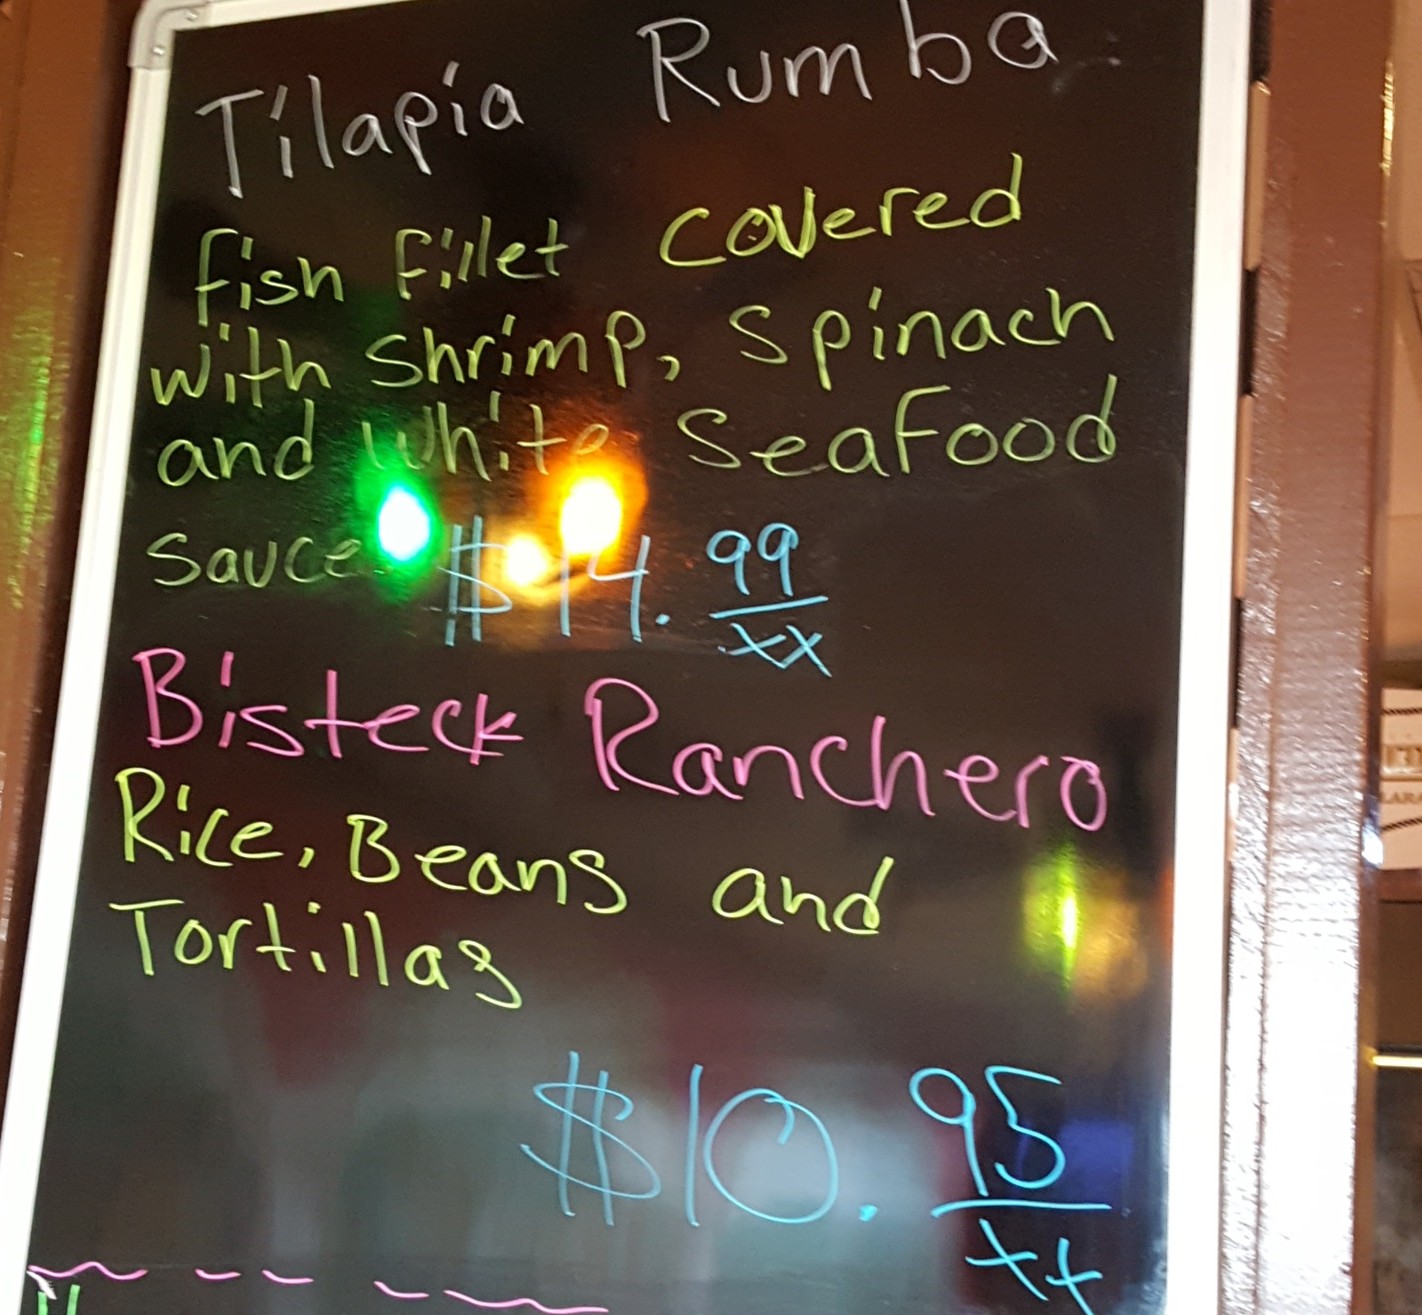 Tilapia Rumba
fish fillet covered
with shrimp, spinach
and white Seafood
sauce $14.99
xx
Bisteck Ranchero
Rice, Beans and
Tortillas
$10.95
xx